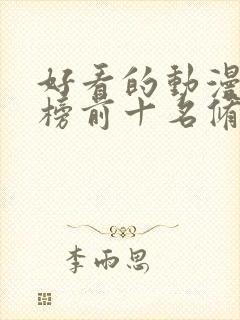 好看的動漫
榜前十名脩
李雨思